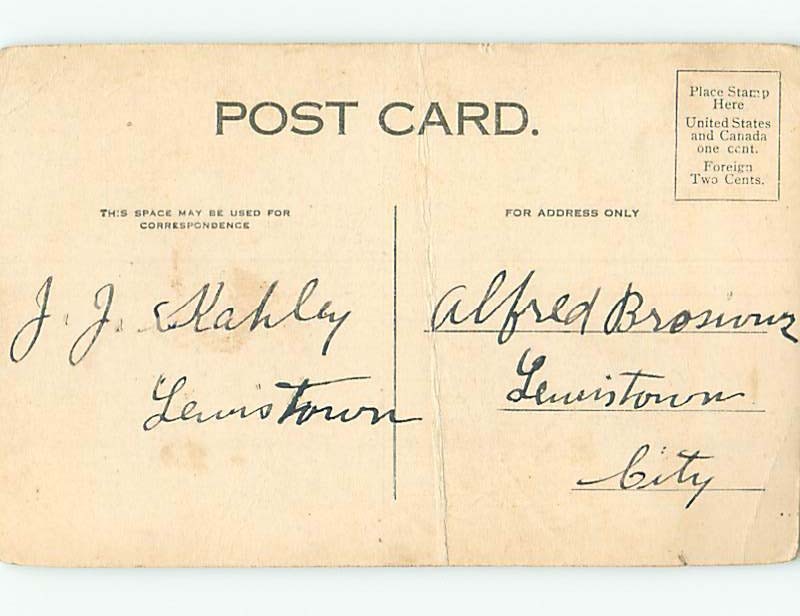 POST CARD.
Place Stamp
Here
United States
and Canada
one cent.
Foreign
Two Cents.
THIS SPACE MAY BE USED FOR
CORRESPONDENCE
FOR ADDRESS ONLY
J. J. Kahley
Lewistown
Alfred
Lewistown
City